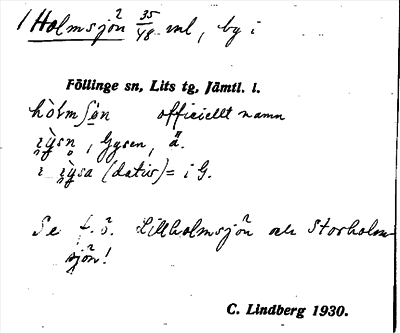 1 Holmsjön 35/48 vnl, by i
Föllinge sn, Lits tg, Jämtl. l.
hòlmʃøn officiellt namn
Gysen, ä.
i (dativ) = i G.
Se f. ö. Lillholmsjön och Storholm-
sjön!
C. Lindberg 1930.